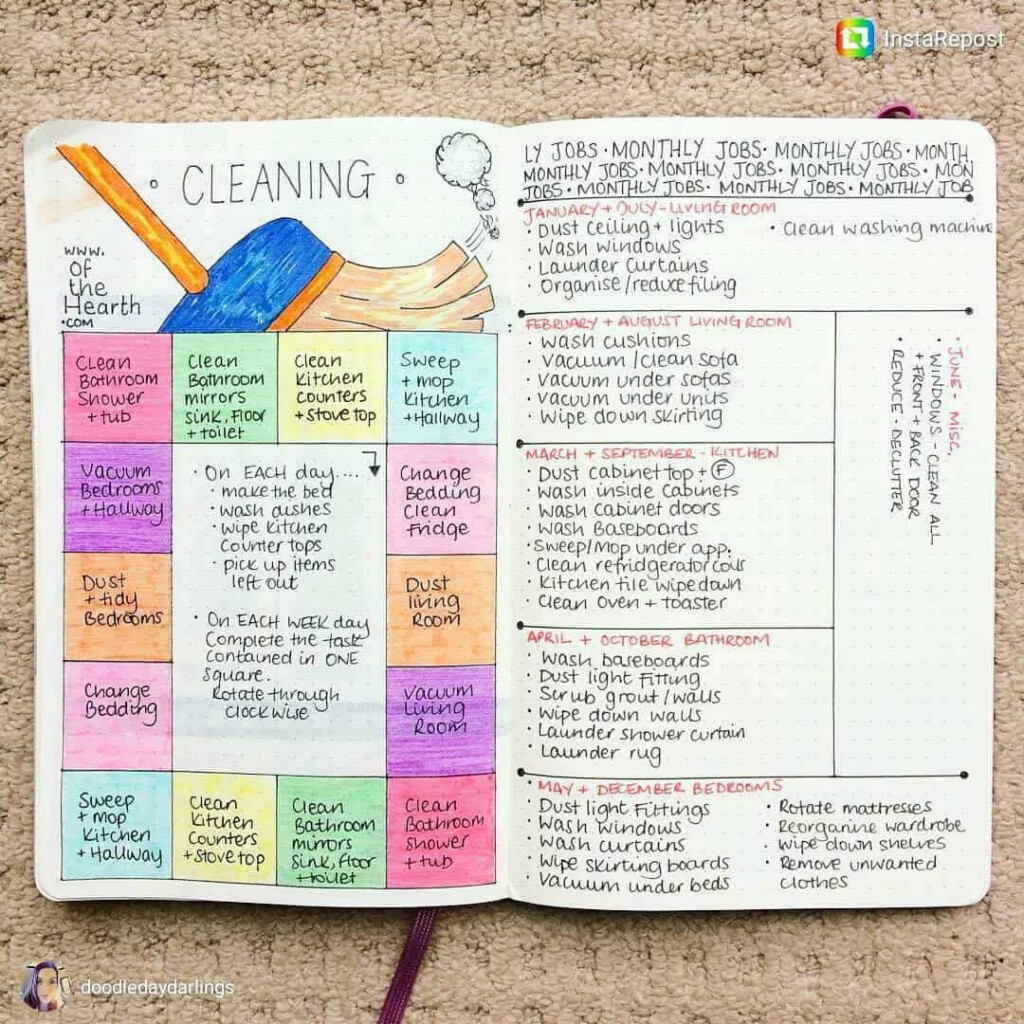 InstaRepost
CLEANING
www.
of
the
Hearth
.com
Clean
Bathroom
Shower
+ tub
Clean
Bathroom
mirrors
sink, floor
+ toilet
Clean
Kitchen
counters
+ stove top
Sweep
+ mop
Kitchen
+ Hallway
Vacuum
Bedrooms
+ Hallway
• On EACH day....
• make the bed
• wash dishes
• wipe kitchen
counter tops
• pick up items
left out
• On EACH WEEK day
Complete the task
contained in ONE
square.
Rotate through
clockwise
Change
Bedding
Clean
Fridge
Dust
+ tidy
Bedrooms
Dust
living
Room
Change
Bedding
Vacuum
Living
Room
Sweep
+ mop
Kitchen
+ Hallway
Clean
Kitchen
Counters
+ stove top
Clean
Bathroom
mirrors
sink, floor
+ toilet
Clean
Bathroom
Shower
+ tub
LY JOBS • MONTHLY JOBS • MONTHLY JOBS • MONTH
MONTHLY JOBS • MONTHLY JOBS • MONTHLY JOBS • MON
JOBS • MONTHLY JOBS • MONTHLY JOBS • MONTHLY JOB
JANUARY + JULY - LIVING ROOM
• Dust ceiling + lights
• Wash windows
• Launder curtains
• Organise / reduce filing
• Clean washing machine
FEBRUARY + AUGUST LIVING ROOM
• Wash cushions
• Vacuum / clean sofa
• Vacuum under sofas
• Vacuum under units
• Wipe down skirting
• JUNE - MISC.
• WINDOWS - CLEAN ALL
+ FRONT + BACK DOOR
• REDUCE - DECLUTTER
MARCH + SEPTEMBER - KITCHEN
• Dust cabinet top + F
• Wash inside cabinets
• Wash cabinet doors
• Wash Baseboards
• Sweep/Mop under app.
• Clean refridgerator cous
• Kitchen tile wipedown
• Clean oven + toaster
APRIL + OCTOBER BATHROOM
• Wash baseboards
• Dust light fitting
• Scrub grout / walls
• Wipe down walls
• Launder shower curtain
• Launder rug
• MAY + DECEMBER BEDROOMS
• Dust light fittings
• Wash windows
• Wash curtains
• Wipe skirting boards
• Vacuum under beds
• Rotate mattresses
• Reorganine wardrobe
• Wipe down shelves
• Remove unwanted
clothes
doodledaydarlings